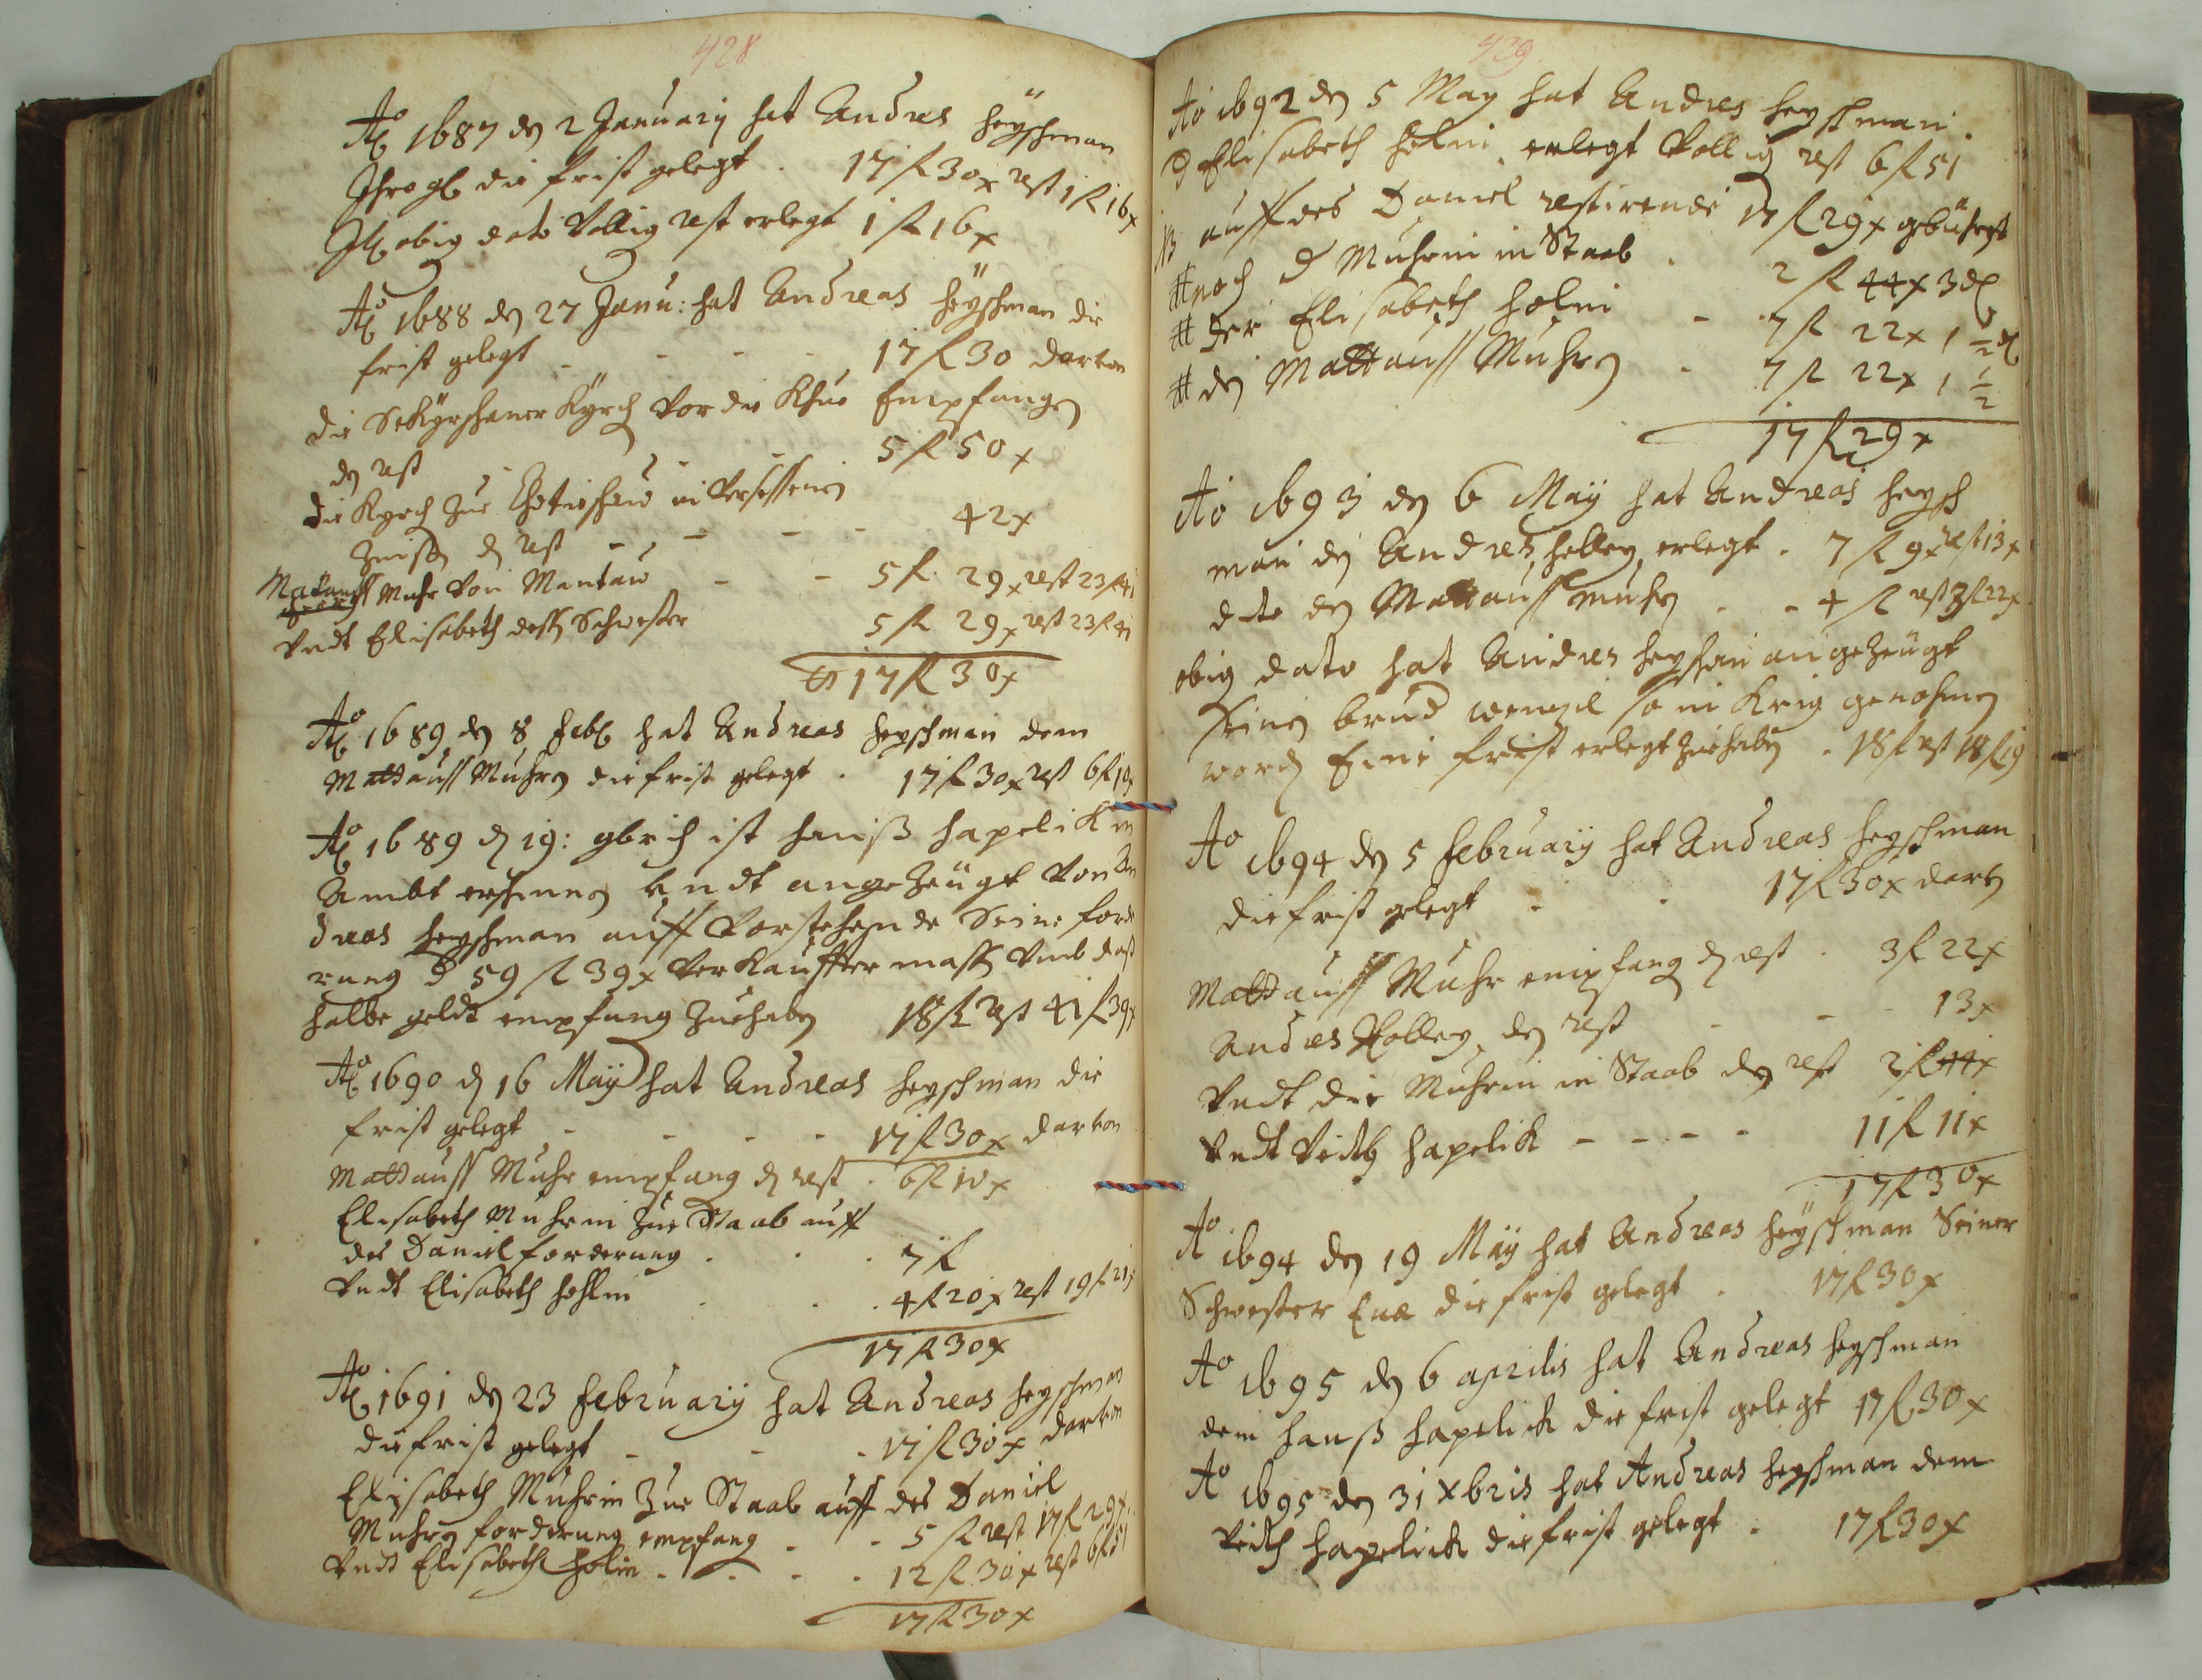 428
Ao 1687 den 2 January hat Andres Heÿschman
Ihro gl die frist gelegt . 17 fl 30 x rest 1 fl 16 x
obig dato Vollig rest erlegt 1 fl 16 x
Ao 1688 den 27 Janu: hat Andreas Heÿschman die
frist gelegt - - - - 17 fl 30 darvon
die Kÿrch vor die Khue Empfangen
den rest - - - 5 fl 50 x
die Kyrch zue Chotieschau an Versessenen
Zinsen den rest - - - - 42 x
Mattauss Muhr von Mantau - - 5 fl 29 x rest 23 fl 41
Vndt Elisabeth dess Schwester 5 fl 29 x rest 23 fl 41
17 fl 30 x
Ao 1689 den 8 Feb hat Andreas Heyschman dem
Mattauss Muhren die frist gelegt . 17 fl 30 x rest 6 fl 10 x
Ao 1689 den 19: 9brich ist Hanß Hapelick in
Ambt erschinen Vndt angezeügt von An
dreas Heyschman auff Vorstehende Seine forde
rung d 59 fl 39 x Verkauffter massen Vmb das
halbe geldt empfang zue haben 18 fl rest 41 fl 39 x
Ao 1690 den 16 Maÿ hat Andreas Heyschman die
frist gelegt - - - - 17 fl 30 x darvon
Mattauss Muhr empfang den rest . 6 fl 10 x
Elisabeth Muhrin zue Staab auff
des Daniel forderung . . . 7 fl
Vndt Elisabeth Hohlin . . . 4 fl 20 x rest 19 fl 21 x
17 fl 30 x
Ao 1691 den 23 February hat Andreas Heyschman
die frist gelegt - - - 17 fl 30 x darvon
Elisabeth Muhrin Zue Staab auff des Daniel
Muhren forderung empfang . . 5 fl rest 17 fl 29 x
Vndt Elisabeth Holin . . . . 12 fl 30 x rest 6 fl 51
17 fl 30 x
429
Ao 1692 den 5 May hat Andres Heyschman .
d Elisabeth Holin erlegt Vollig rest 6 fl 51
NB auff des Daniel restirende 17 fl 29 x gebührt
# noch d Muhrin in Staab . 2 fl 44 x 3 d
# der Elisabeth Holin - 7 fl 22 x 1 1/2 d
# den Mattauss Muhren . 7 fl 22 x 1 1/2
17 fl 29 x
Ao 1693 den 6 Maÿ hat Andreas Heysch
man den Andres Holley erlegt . 7 fl 9 x rest 13 x
dto den Mattauss Muhren . - 4 fl rest 3 fl 22 x
obig dato hat Andres Heyschman angezeügt
seinen brud wenzel so in Krig genohmen
worden Eine frist erlegt zue haben . 18 fl rest 18 fl 19
Ao 1694 den 5 February hat Andreas Heyschman
die frist gelegt . . 17 fl 30 x darvon
Mattauss Muhr empfang den rest . 3 fl 22 x
Andres Holley den rest - - - 13 x
Vndt die Muhrin in Staab den rest 2 fl 44 x
Vndt Veith Hapelick - - - - 11 fl 11 x
17 fl 30 x
Ao 1694 den 19 Maÿ hat Andreas Heÿschman Seiner
Schwester Eva die frist gelegt . 17 fl 30 x
Ao 1695 den 6 aprilis hat Andreas Heyschman
dem Hanß Hapelick die frist gelegt 17 fl 30 x
Ao 1695 den 31 Xbris hat Andreas Heyschman dem
Veith Hapelick die frist gelegt . 17 fl 30 x